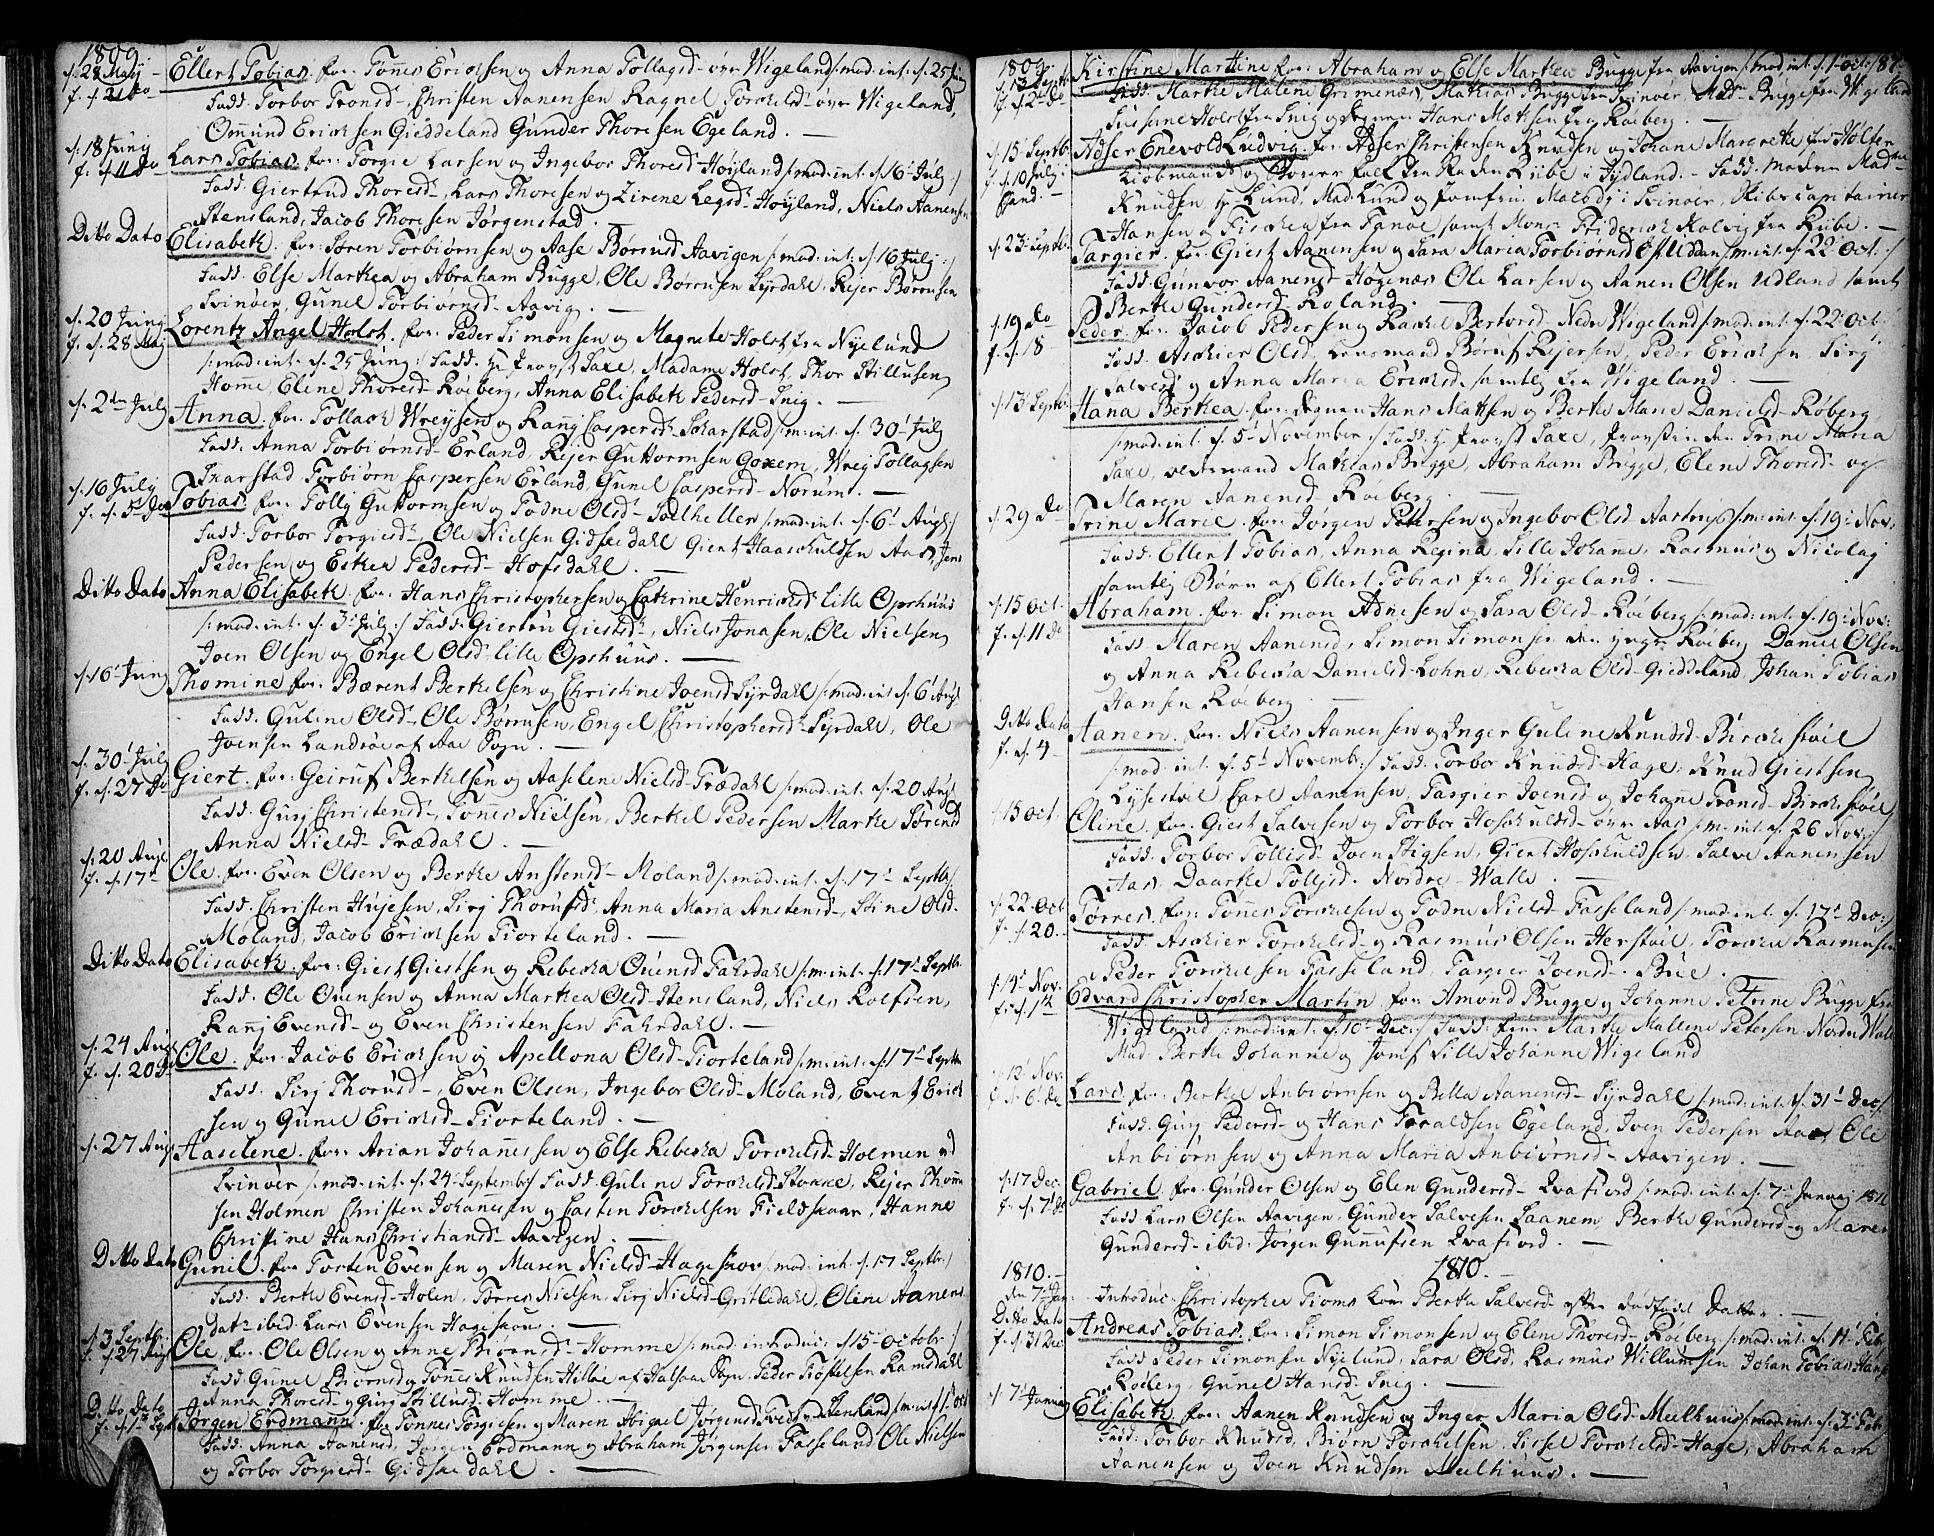 1809
d. 28 Maij Ellert Tobias. for: Tønnes Ericksen og Anna Tollagsd- øvr Wigeland /: mad: int: d. 25 Junj
f. d. 21 do
Fadd: Torbor Tronsd-, Christen Aanensen Ragnel Torkelsd- øvr Wigeland,
Ommund Ericksen Gieddeland Gunder Thoresen Egeland. —
d. 18 Junij Lars Tobias. for: Torgie Larsen og Ingebor Thoresd- Høyland /: mad: int: d. 16 Julj :/
f. d. 11 do
Fadd: Giertrud Thoresd-, Lars Thoresen og Zirene Legsd- Høyland, Niels Aanensen
Stensland, Jacob Thoresen Jørgenstad.
Ditto Dato Elisabeth. for: Søren Torbiørnsen og Aase Børrusd Aavigen /: mad: int: d. 16 Julj :/
Fadd: Else Marthea og Abraham Bugge, Ole Børrusen Syrdahl, Rejer Børrusen
Svinøer, Gunel Torbiørnsd- Aavig. —
d. 20 Junij Lorentz Angel Holst. for: Peder Simonsen og Magrete Holst fra Nyelund
f. d. 28 Maj
/: mad: int: d. 25 Junj :/ Fadd: Hr Provst Saxe, Madame Holst, Thor Stillusen
Home, Elene Thoresd- Røeberg, Anna Elisabeth Pedersd- Snig. —
d. 2den Julj Anna. for: Tollack Wreysen og Ranj Caspersd- Skarstad /: m: int: d. 30 Julj
Fadd: Anna Torbiørnsd- Erland, Rejer Guttormsen Goxem, Wreg Tollagsen
Skarstad Torbiørn Caspersen Erland, Gunel Caspersd- Norum. —
d. 16 Julij Tobias. for: Tollij Guttormsen og Todne Olsd- Solhellen /: mad: int: d. 6 Augl :/
f. d. 5 do
Fadd: Torbor Torgiesd-, Ole Nielsen Gidskedahl Giert Haaschuldsen Aas, Jens
Pedersen og Esther Pedersd- Hofsdahl. —
Ditto Dato Anna Elisabeth. for: Hans Christophersen og Cathrine Henricksd lille Opshuus
/: mad: int: d. 3 Julj :/ Fadd: Giertru Giestsd-, Niels Jonasen, Ole Nielsen
Joen Olsen og Engel Olsd- lille Opshuus. —
d. 16 Junj Thomine for: Bærent Berthelsen og Christine Joensd Syrdahl /: mad: int d. 6 Augl
Fadd: Guline Olsd- Ole Børrusen, Engel Christophersd- Syrdahl, Ole
Joensen Landrøe af Aae Sogn. —
d. 30 Julj Giert. for: Geiruf Berthelsen og Aaselene Nielsd- Trædahl /: mad: int: d. 20 Augl
f. d. 27 Do
Fadd: Gurj Christensd-, Tønnes Nielsen, Berthel Pedersen Marthe Sørensd
Anna Nielsd- Trædahl. —
d. 20 Augl Ole. for: Even Olsen og Berthe Anstensd- Moland /: mad: int: d. 17 Septbr
f. d. 17
Fadd: Christen Hujesen, Sirj Thorufsd-, Anna Maria Anstensd-, Stine Olsd-
Moland, Jacob Ericksen Tiorteland. —
Ditto Dato Elisabeth. for: Giest Giestsen og Rebecka Ovensd Fahrdahl /: m: int: d. 17 Septbr
Fadd: Ole Ovensen og Anna Marthea Olsd- Stensland, Niels Rolfsen,
Ranj Evensd- og Even Christensen Fahrdahl. —
d. 24 Augl Ole. for: Jacob Ericksen og Apellona Olsd- Tiorteland /: m: int: d. 17 Septbr
f. d. 20 do
Fadd: Sirj Thorusd-, Even Olsen, Ingebor Olsd- Moland, Even Erick
sen og Gunel Ericksd- Tiorteland. —
d. 27 Augl Aaselene. for: Arian Johannesen og Else Rebecka Torkelsd- Holmen ved
Svinøer /: mad: int: d. 24 Septembr :/ Fadd: Guline Torkelsd Stokke, Rejer Thom
sen Holmen Christen Johannesen og Casten Torkelsen Fieldskaar, Hanne
Christine Hans Christiansd- Aavigen. —
Ditto Dato Gunel. for Torten Evensen og Maren Nielsd- Hageskov /: mad: int: d. 17 Septbr :/
Fadd: Berthe Evensd- Holen, Torres Nielsen, Sirj Nielsd- Gritledahl, Oline Aanens
datr ibid: Lars Evensen Hageskou. —
d. 3 Septbr Ole. for Ole Olsen og Anne Biørnsd- Homme /: mad: introduc: d. 15 Octobr :/
f. d. 27 Augl
Fadd Gunel Biørnsd og Tønnes Knudsen Hillie af Halsaae Sogn, Peder Tiøstelsen Ramsdahl
Anna Thoresd- og Gurj Stillusd- Homme. —
Ditto Dato Jørgen Erdmann. for Tønnes Torgiesen og Maren Abigael Jørgensd Stensland /: m: int: d. 1 Oct
Fadd: Anna Aanensd, Jørgen Erdmann og Abraham Jørgensen Fasseland, Ole Nielsen
og Torbor Torgiesd- Gidskedahl. —
1809.
d. 13 Septbr Kirstine Marthine for: Abraham og Else Marthea Bugge fra Aavigen /: mad: int: d. 1 Oct: 
Fadd: Marthe Malene Grimenæs, Mathias Bugge fra Svinøer, Mad- Bugge fra Wigeland
Susane Holst fra Snig og Degnen Hans Mathsen fra Røeberg. —
d. 15 Septbr Adser Enevold Ludvig. for: Adser Christensen Knudsen og Johane Margrethe fød Holter
f. d. 10 Julj
Kiøbmands og Borger folk fra Staden Riibe i Jydland. — Fadd: Madam Mad-
Knudsen, Hr Lund, Mad: Lund og Jomfrue Maebdg i Svinøer, Skibscapitainer
Hansen og Fischea fra Fanøe, samt Mons: Friderich Kolvig fra Ribe. —
d. 23 Septbr Targier. for: Giest Aanensen og Sara Maria Torbiørnsd Spilddan /: m: int: d. 22 Oct: :/
Fadd: Gunvor Aanensd- Høgenæs Ole Larsen og Aanen Olsen Udland samt
Berthe Gundersd- Roland. —
d. 19 do Peder. for: Jacob Pedersen og Rachel Bertorsd- Nedre Wigeland /: mad: int: d. 22 Oct:
f. d. 18 —
Fadd: Askier Olsd, Lensmand Børuf Rejersen, Peder Ericksen Sirj
Salvesd- og Anna Maria Ericksd- samtlig fra Wigeland. —
d. 13 Septbr Hana Berthea. for: Degnen Hans Mathsen og Berthe Marie Danielsd- Røberg
/: mad: int: d. 5 November :/ Fadd: Hr Provst Saxe, Provstinden Trine Maria
Saxe, Mathias Bugge, Abraham Bugge, Elene Thoresd- og
Maren Aanensd- Røeberg. —
d. 29 do Trine Marie. for: Jørgen Petersen og Ingebor Olsd- Aastrup /: m: int: d. 19 Nov:
Fadd: Ellert Tobias, Anna Regina, Sille Johane, Rasmus og Nicolaj
samtlig Børn af Ellert Tobias fra Wigeland. —
d. 15 Oct. Abraham. for: Simon Adnesen og Sara Olsd- Røeberg /: mad: int: d. 19 Nov:
f. d. 11 do
Fadd: Maren Aanensd, Simon Simonsen den yngr Røeberg Daniel Olsen
og Anna Rebecka Danielsd- Lohne, Rebecka Olsd- Gieddeland, Johan Tobias
Hansen Røeberg —
Ditto Dato Aanen. for: Niels Aanensen og Inger Guline Knudsd- Birchestøel
f. d. 4 —
/: mad: int: d. 5 Novembr :/ Fadd: Torbor Knudsd- Hage, Knud Giestsen
Lysestøl Carl Aanensen, Targier Joensd og Johane Tronsd- Birchestøel
d. 15 Oct. Oline. for: Giest Salvesen og Torbor Hoskuldsd- øvre Aas /: m: int: d. 26 Nov: :/
Fadd: Torbor Tollisd- Joen Stigsen, Giert Hoskuldsen, Salve Aanensen
Aas, Daarthe Tollisd. Nordre- Walle. —
d. 22 Oct Torres. for: Tønnes Torkelsen og Todne Nielsd- Fasseland /: mad: int: d. 17 Dec: :/
f. d. 20. —
Fadd: Askier Torkelsd- og Rasmus Olsen Herstøl, Torkel Rasmusen
Peder Torkelsen Fasseland, Targier Joensd- Bue.
Nov: Edvard Christopher Martin. for: Amond Bugge og Johanne Petrine Bugge fra
Wigeland /: mad: int: d. 10 Dec: :/ Fadd: frue Marthe Mallene Petersen Nordre Wall
Mad: Berthe Johanne og Jomf Sille Johanne Wigeland
12 Nov: Lars. for: Berthe Anbiørnsen og Bella Aanensd- Syrdahl /: mad: int: d. 31 Dec :/
f. d. 6 de
Fadd: Gurj Pedersd- og Hans Toraldsen Egeland, Joen Pedersen Aas, Ole
Anbiørnsen og Anna Maria Anbiørnsd- Aavigen. —
d. 17 Dec. Gabriel. for: Gunder Olsen og Elen Gundersd- Qvafiord /: mad: int: d. 7 Januarj 1810
f. d. 7 de
Fadd Lars Olsen Aavigen, Gunder Salvesen Laanem, Berthe Gundersd- og Maren
Gundersd- ibid: Jørgen Gunnufsen Qvafiord. —
1810. — 1810. —
den 7 Jan. Introduc: Christopher Tioms Kone Berthe Salvesd- efter dødfødd Datter. —
Ditto Dato Andreas Tobias. for: Simon Simonsen og Elene Thoresd- Røeberg /: mad: int: d. 11 Feb
f. d. 31 Dec
Fadd Peder Simonsen Nyelund, Sara Olsd, Rasmus Willumsen, Johan Tobias Hans
Røeberg, Gunel Hansd- Snig. —
d. 7 Januarj Elisabeth. for: Aanen Knudsen og Inger Maria Olsd- Meelhuus /: mad: int: d. 3 Febr
Fadd: Torbor Knudsd, Biørn Torkelsen, Sissel Torkelsd- Hage, Abraham
Aanensen og Joen Knudsen Meelhuus. —